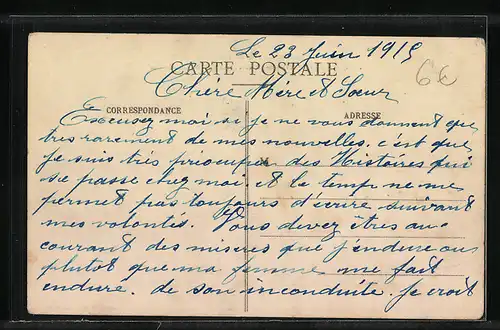 Le 23 Juin 1915
CARTE POSTALE
6€
Chère Mère et Sœur
CORRESPONDANCE
ADRESSE
Excusez moi si je ne vous donnent que
tres rarement de mes nouvelles. c'est que
je suis très préoccuper des Histoires qui
se passe chez moi et le temp ne me
permet pas toujours d'écrire suivant
mes volontés. Vous devez êtres au
courant des miseres que j'endure ou
plutot que ma femme me fait
endure. de son inconduite. Je croit